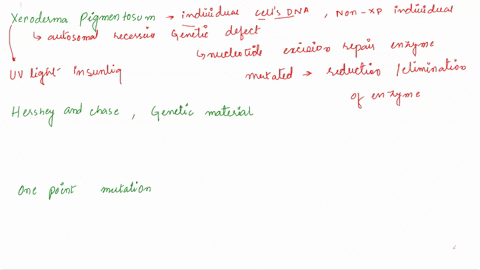 Xeroderma Pigmentosum → individual cell's DNA , Non-XP individual
↳ autosomal recessive Genetic defect
↳ nucleotide excision repair enzyme
UV light insunliq
mutated → reduction /elimination
of enzyme
Hershey and chase , Genetic material
One point mutation